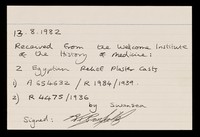 13.8.1982
Received from the Welcome Institute
of the History of Medicine:
2 Egyptian Relief Plaster Casts
1) A 654632 / R 1984/1939.
2) R 4475/1936
by Swenson
Signed: